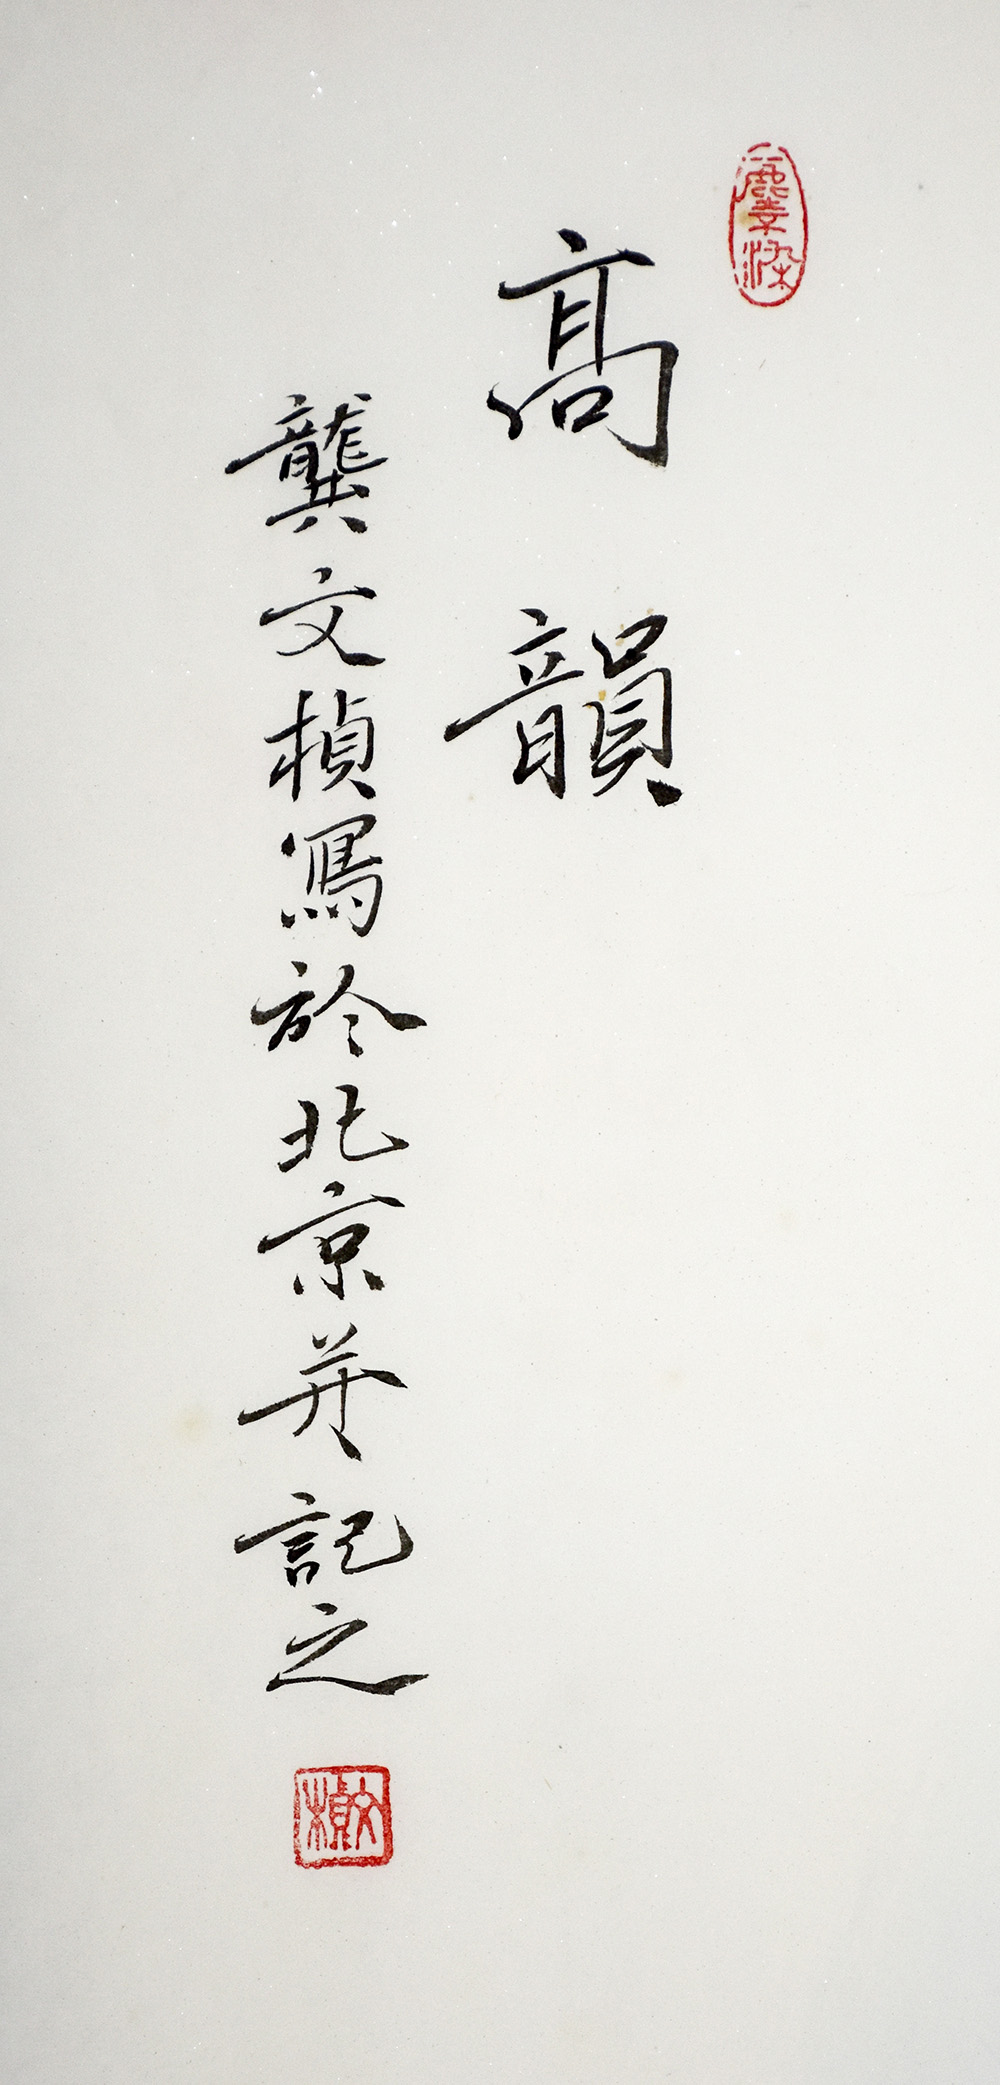 高韻
龔文楨寫於北京并記之
文楨